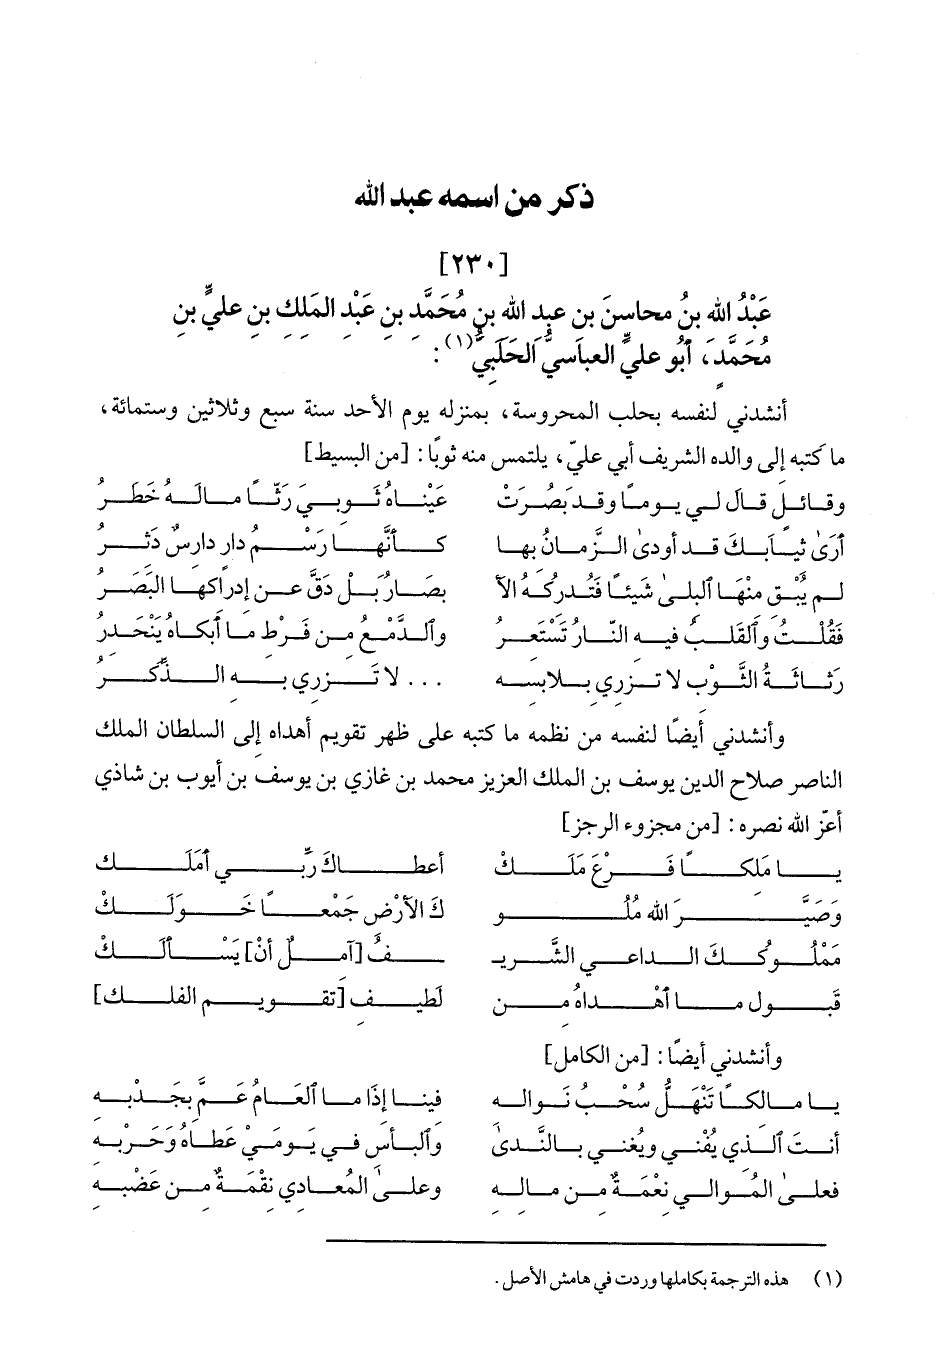 ذكر من اسمه عبد الله
[٢٣٠]
عَبْدُ الله بنُ محاسنَ بنِ عبدِ الله بنِ مُحَمَّدِ بنِ عَبْدِ المَلكِ بنِ عليِّ بنِ
مُحَمَّدٍ، أبُو عليٍّ العباسيُّ الحَلَبيُّ(١):
أنشدني لنفسه بحلب المحروسة، بمنزله يوم الأحد سنة سبع وثلاثين وستمائة،
ما كتبه إلى والده الشريف أبي عليّ، يلتمس منه ثوبًا: [من البسيط]
وقائلٍ قالَ لي يومًا وقد بَصُرَتْ عَيْنَاهُ ثَوبيَ رَثًّا مالَهُ خَطَرُ
أرَىٰ ثيَابَكَ قد أودىٰ الزَّمانُ بها كأنَّها رَسْمُ دارٍ دارسٌ دَثرُ
لم يُبْقِ منْهَا البلىٰ شَيئًا فَتُدركَهُ الأ بصَارُ بَلْ دَقَّ عن إدراكهَا البَصَرُ
فَقُلْتُ والقَلبُ فيه النّارُ تَسْتَعرُ والدَّمْعُ من فَرْطِ مَا أبكاهُ يَنْحَدرُ
رَثاثَةُ الثَّوْبِ لا تزري بلابسه ... لا تَزري به الذِّكَرُ
وأنشدني أيضًا لنفسه من نظمه ما كتبه على ظهر تقويم أهداه إلى السلطان الملك
الناصر صلاح الدين يوسف بن الملك العزيز محمد بن غازي بن يوسف بن أيوب بن شاذي
أعزّ الله نصره: [من مجزوء الرجز]
يا مَلكًا فَرْعَ مَلَكْ أعطاكَ ربِّي أمَلَكْ
وَصَيَّرَ الله مُلُو كَ الأرْضِ جَمْعًا خَوَلَكْ
مَمْلُوكُكَ الداعي الشَّريـ ـفُ [آملٌ أنْ] يَسْألَكْ
قَبولَ ما أهْداهُ من لَطيفِ [تقويم الفلك]
وأنشدني أيضًا: [من الكامل]
يا مالكًا تَنْهَلُّ سُحْبُ نَواله فينا إذَا ما العَامُ عَمَّ بجَدْبه
أنتَ الذي يُفْني ويُغني بالنَّدىٰ والبأسِ في يَومَيْ عَطَاهُ وَحَرْبه
فعلىٰ المُوالي نعْمَةٌ من ماله وعلىٰ المُعادي نقْمَةٌ من عَضْبه
(١) هذه الترجمة بكاملها وردت في هامش الأصل.